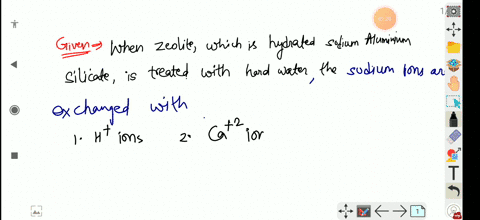 Given → When zeolite, which is hydrated sodium Aluminium
Silicate, is treated with hard water, the sodium ions ar
exchanged with
1. H+ ions 2. Ca+2 ior